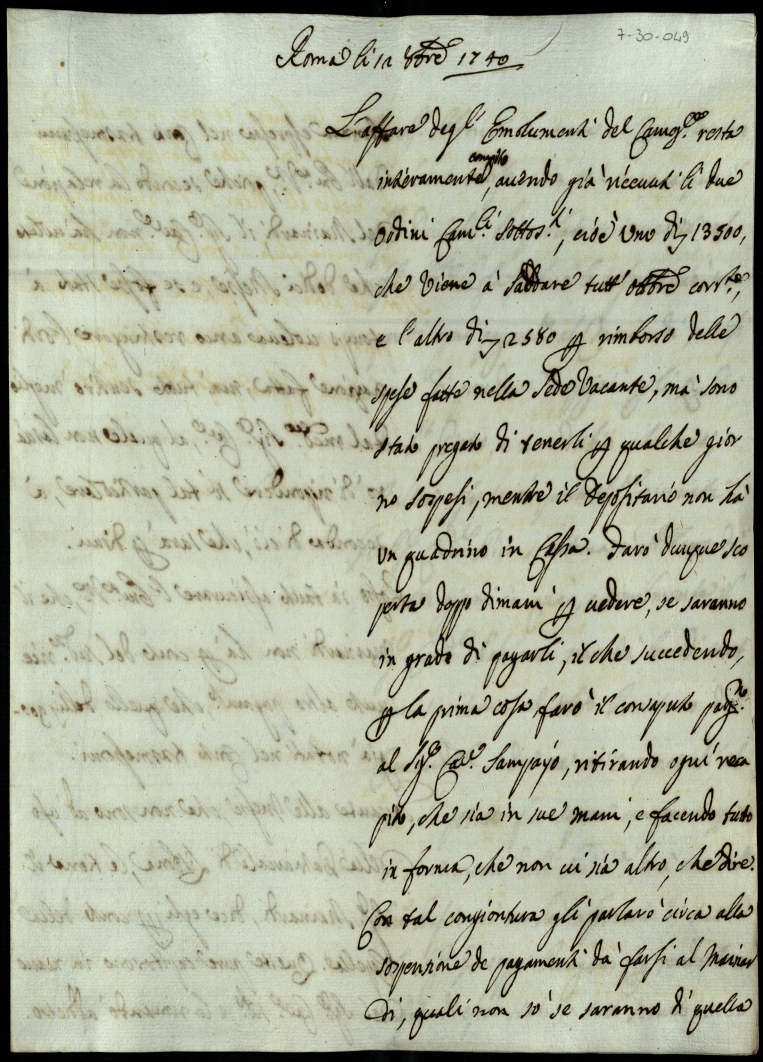 7-30-049
Roma li 12 8bre 1740
L'affare degl' Emolumenti del Camerg.to resta
interamente compito, avendo già riceuuti li due
Ordini Cam.li sottos.ti, cioè uno di 13500,
che viene à saldare tutt' ottobre corr.te,
e l'altro di 2580 p rimborso delle
spese fatte nella Sede Vacante, mà sono
stato pregato di tenerli p qualche gior
no sospesi, mentre il Depositario non hà
un quadrino in Cassa. Darò dunque sco
perta doppo dimani p uedere, se saranno
in grado di pagarli, il che succedendo,
p la prima cosa farò il consaputo pag.to
al Sig.r Cau.r Sampajo, ritirando ogni reca
pito, che sia in sue mani, e facendo tutto
in forma, che non ui sia altro, che dire.
Con tal congiontura gli parlarò circa alla
sospensione de pagamenti dà farsi al Mainar
di, quali non sò se saranno di quella